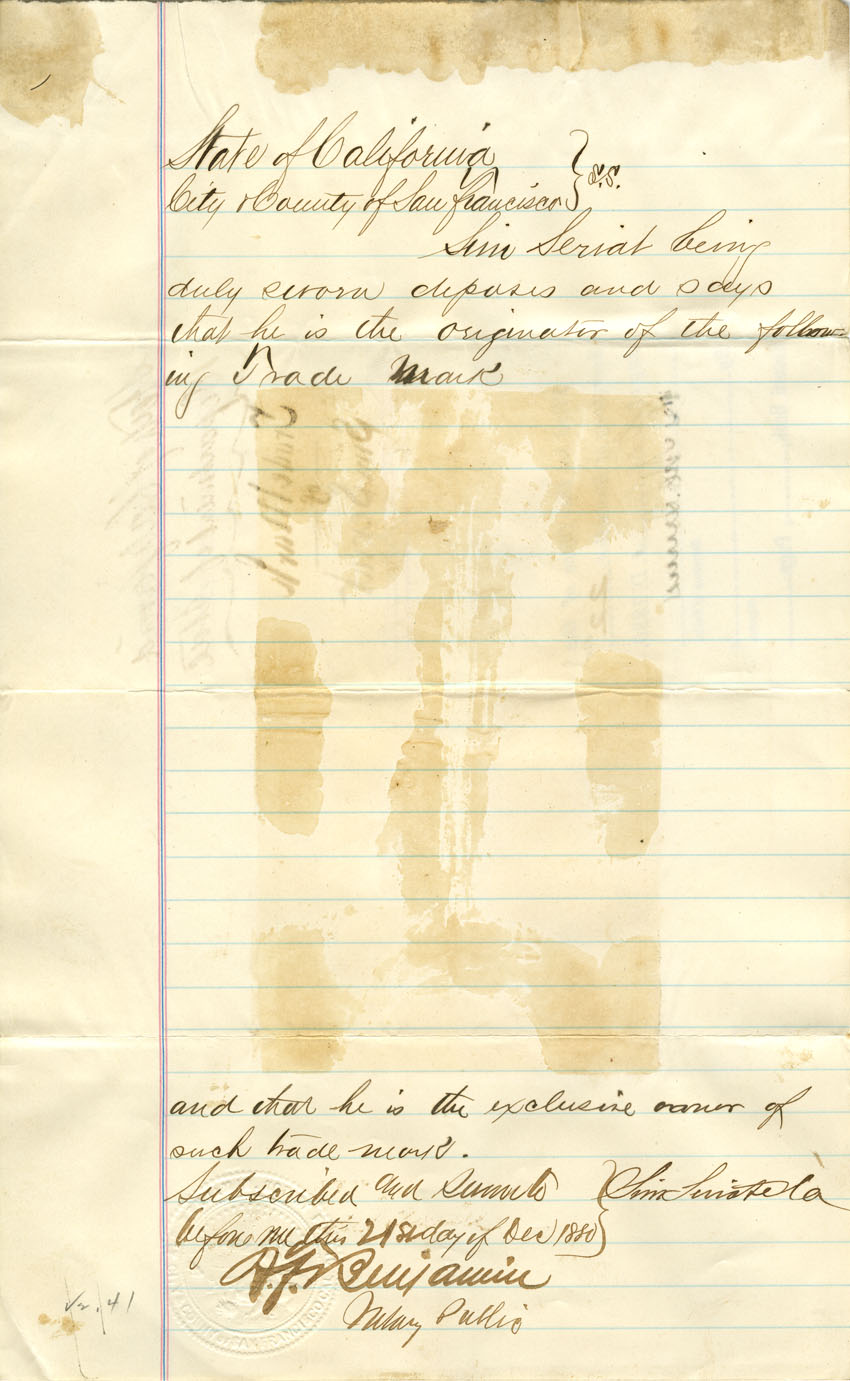 State of California } S.S.
City & County of San Francisco
Sim Seriat being
duly sworn deposes and says
that he is the originator of the follow-
ing Trade Mark
and that he is the exclusive owner of
such trade mark.
Subscribed and Sworn to
before me this 21st day of Dec 1880
A. J. Benjamin
Notary Public